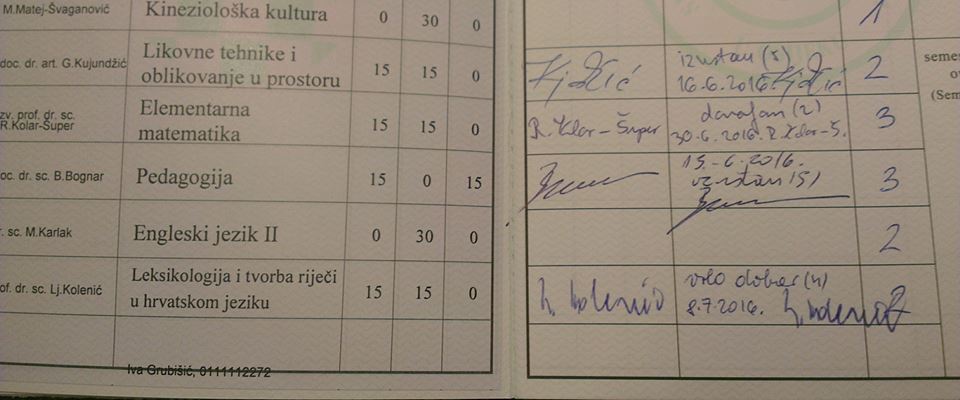 M.Matej-Švaganović Kineziološka kultura 0 30 0 1
doc. dr. art. G.Kujundžić Likovne tehnike i
oblikovanje u prostoru 15 15 0 izvrstan (5)
16.6.2016. 2
zv. prof. dr. sc.
R.Kolar-Šuper Elementarna
matematika 15 15 0 R. Kolar-Šuper dovoljan (2)
30.6.2016. R. Kolar-Š. 3
oc. dr. sc. B.Bognar Pedagogija 15 0 15 15.6.2016.
izvrstan (5) 3
. sc. M.Karlak Engleski jezik II 0 30 0 2
of. dr. sc. Lj.Kolenić Leksikologija i tvorba riječi
u hrvatskom jeziku 15 15 0 Lj. Kolenić vrlo dobar (4)
8.7.2016. Lj. Kolenić 2
Iva Grubišić, 0111112272
seme
ov
(Sem